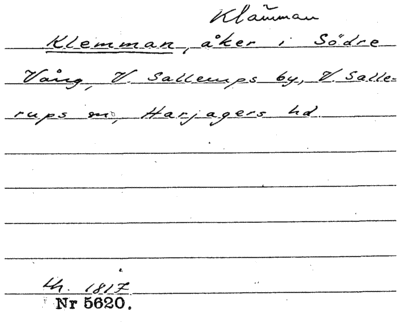 Klämman
Klemman, åker i Södre
Vång, V. Sallerups by, V. Salle-
rups sn, Harjagers hd
Lh. 1817
Nr 5620.